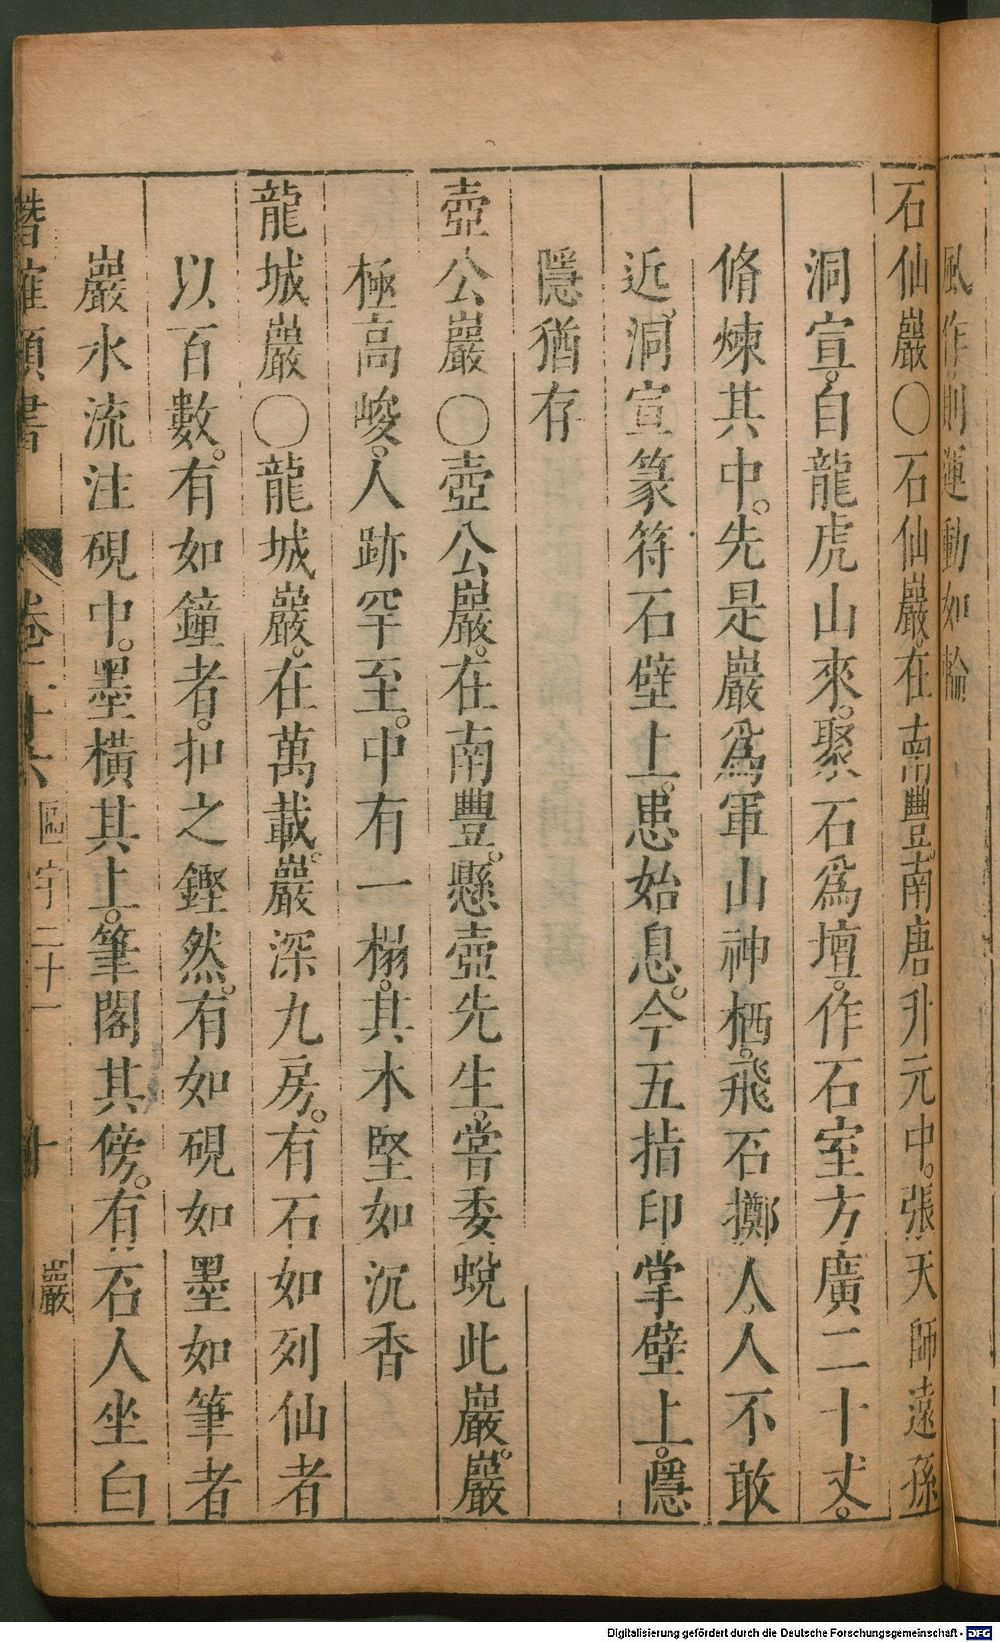 風作則運動如輪
石仙巖○石仙巖在南豐南唐升元中。張天師遠孫
洞宣。自龍虎山來。聚石爲壇。作石室方廣二十丈。
脩煉其中。先是巖爲軍山神栖。飛石擲人。人不敢
近。洞宣篆符石壁上。患始息。今五指印掌壁上。隱
隱猶存
壺公巖○壺公巖。在南豐。懸壺先生。嘗委蛻此巖。巖
極高峻。人跡罕至。中有一榻。其木堅如沉香
龍城巖○龍城巖。在萬載。巖深九房。有石如列仙者
以百數。有如鐘者。扣之鏗然。有如硯如墨如筆者
巖水流注硯中。墨橫其上。筆閣其傍。有石人坐臼
潛確類書 卷二十六 區宇二十一 十 巖
Digitalisierung gefördert durch die Deutsche Forschungsgemeinschaft - DFG